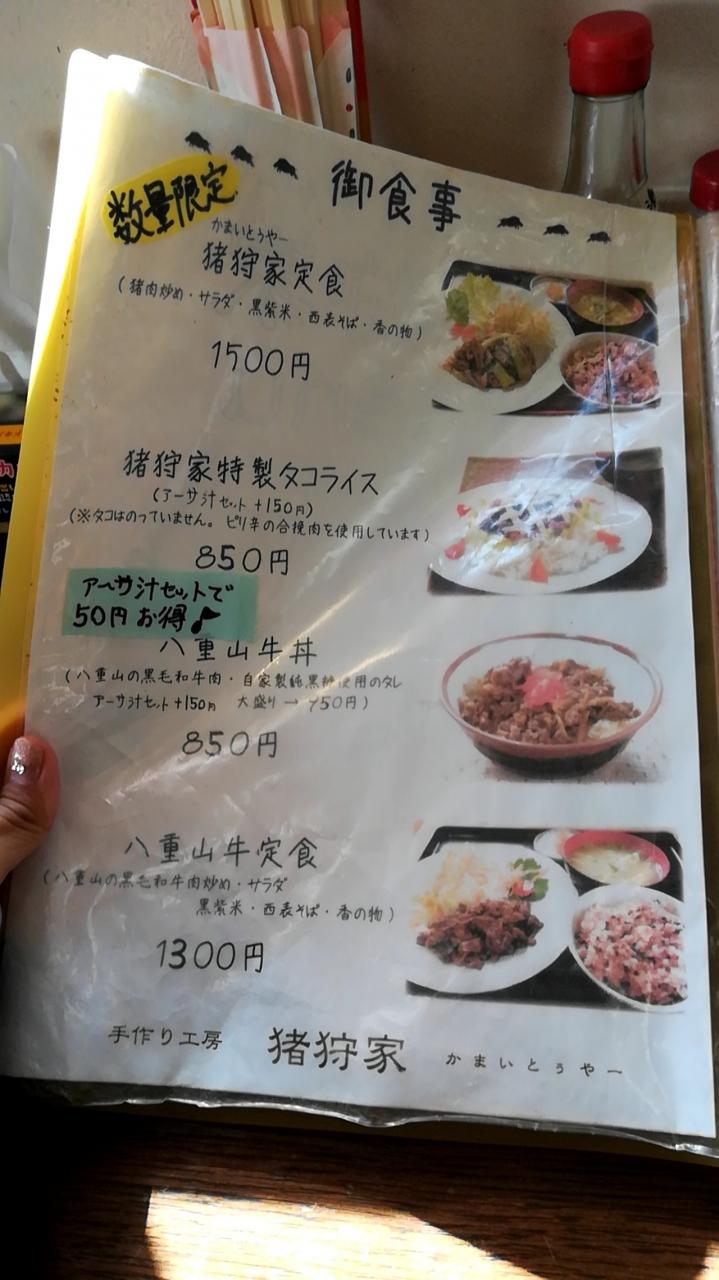 御食事
数量限定
かまいとぅやー
猪狩家定食
(猪肉炒め・サラダ・黒紫米・西表そば・香の物)
1500円
猪狩家特製タコライス
(アーサ汁セット +150円)
(※タコはのっていません。ピリ辛の合挽肉を使用しています)
850円
アーサ汁セットで
50円お得♪
八重山牛丼
(八重山の黒毛和牛肉・自家製純黒糖使用のタレ
アーサ汁セット +150円 大盛り → 950円)
850円
八重山牛定食
(八重山の黒毛和牛肉炒め・サラダ
黒紫米・西表そば・香の物)
1300円
手作り工房 猪狩家 かまいとぅやー